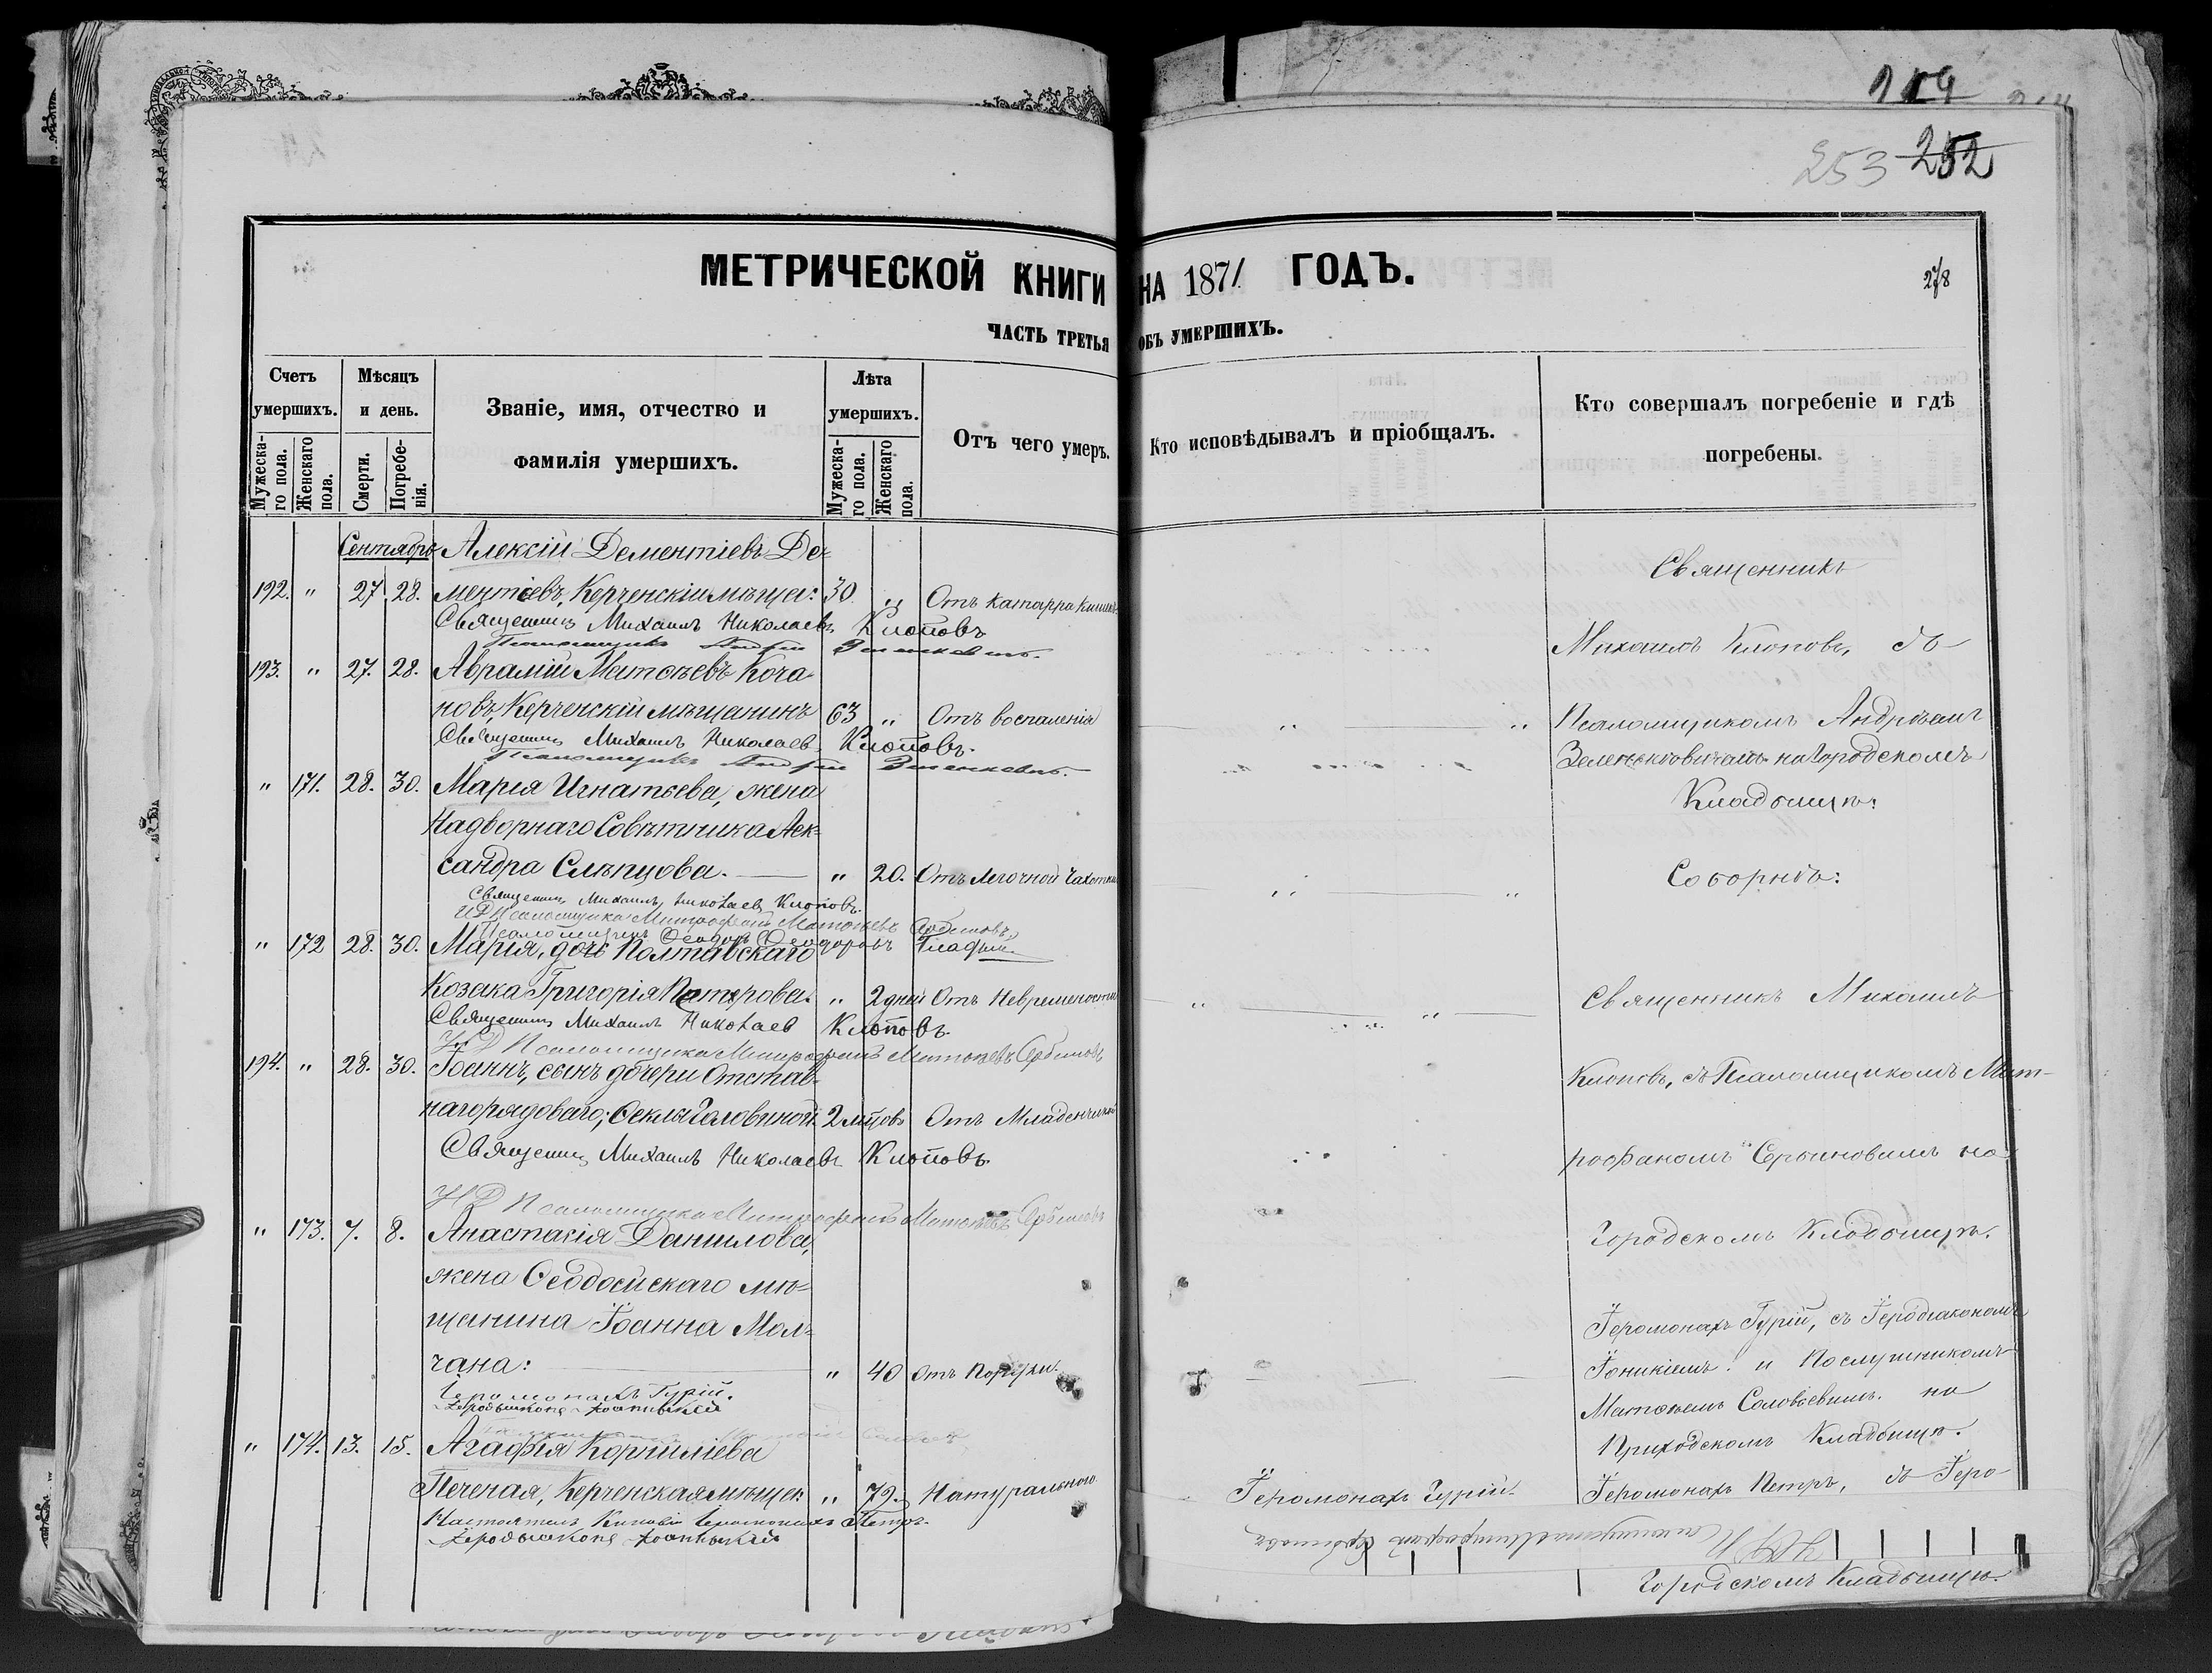 119
253 252
МЕТРИЧЕСКОЙ КНИГИ НА 1871 ГОДЪ.
278
ЧАСТЬ ТРЕТЬЯ ОБЪ УМЕРШИХЪ.
Счетъ умершихъ.
Мужеска-го пола.
Женскаго пола.
Мѣсяцъ и день.
Смерти.
Погребе-нія.
Званіе, имя, отчество и фамилія умершихъ.
Лѣта умершихъ.
Мужеска-го пола.
Женскаго пола.
Отъ чего умеръ.
Кто исповѣдывалъ и пріобщалъ.
Кто совершалъ погребеніе и гдѣ погребены.
Сентябрь Алексій Дементіевъ Де-
192. " 27 28. ментіевъ, Керченскій мѣща: 30 " Отъ катарра кишекъ
Священникъ Михаилъ Николаевъ Клоповъ
Псаломщикъ Андрей
193. " 27. 28. Аврамій Матѳеевъ Коча-
новъ, Керченскій мѣщанинъ 63 " Отъ воспаленія
Священникъ Михаилъ Николаевъ Клоповъ.
Псаломщикъ Андрей
" 171. 28. 30. Марія Игнатьева, жена
Надворнаго Совѣтника Алек-
сандра Слѣпцова. " 20. Отъ Легочной Чахотки
Священникъ Михаилъ Николаевъ Клоповъ.
ИД Псаломщика Митрофанъ Матѳеевъ
Псаломщикъ Ѳеодоръ Ѳеодоровъ
" 172 28. 30. Марія, дочь Полтавскаго
Козака Григорія Петрова. " 2 дней Отъ Невременности
Священникъ Михаилъ Николаевъ Клоповъ.
ИД Псаломщика Митрофанъ Матѳеевъ
194. " 28. 30. Іоаннъ, сынъ дочери Отстав-
наго рядоваго, Ѳеклы Головиной. 2 мцовъ Отъ Младенческой
Священникъ Михаилъ Николаевъ Клоповъ.
ИД Псаломщика Митрофанъ Матѳеевъ
" 173. 7. 8. Анастасія Данилова,
жена Ѳеодосійскаго мѣ-
щанина Іоанна Мол-
чана: " 40 Отъ
Іеромонахъ Гурій.
Іеродіаконъ Іоаникій
" 174. 13. 15. Агафія Корнилiева
Печеная, Керченская мѣщан. " 72. Натуральною
Настоятель Киновіи Іеромонахъ Петръ.
Іеродіаконъ Іоаникій
Іеромонахъ Гурій.
Священникъ
Михаилъ Клоповъ, съ
Псаломщикомъ Андреемъ
Зеленкевичемъ на Городскомъ
Кладбищѣ:
Соборнѣ:
Священникъ Михаилъ
Клоповъ, съ Псаломщикомъ Мит-
рофаномъ Сербиновымъ на
Городскомъ Кладбищѣ.
Іеромонахъ Гурій, съ Іеродіакономъ
Іоникіемъ. и Послушникомъ
Матѳеемъ Соловьевымъ. на
Приходскомъ Кладбищѣ.
Іеромонахъ Петръ, съ Іеро-
ИД Псаломщика Митрофанъ
Городскомъ Кладбищѣ.